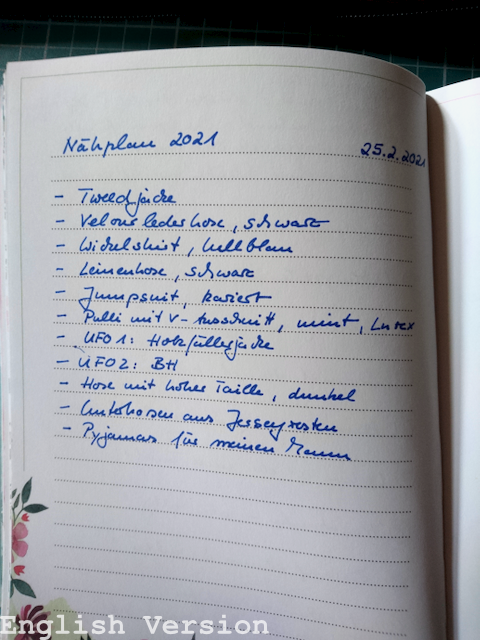 Nähplan 2021 25.2.2021
- Tweedjacke
- Velourslederhose, schwarz
- Wickelshirt, hellblau
- Leinenhose, schwarz
- Jumpsuit, kariert
- Pulli mit V-Ausschnitt, mint, Lurex
- UFO1: Holzfällerjacke
- UFO2: BH
- Hose mit hoher Taille, dunkel
- Unterhosen aus Jerseyresten
- Pyjamas für meinen Mann
English Version